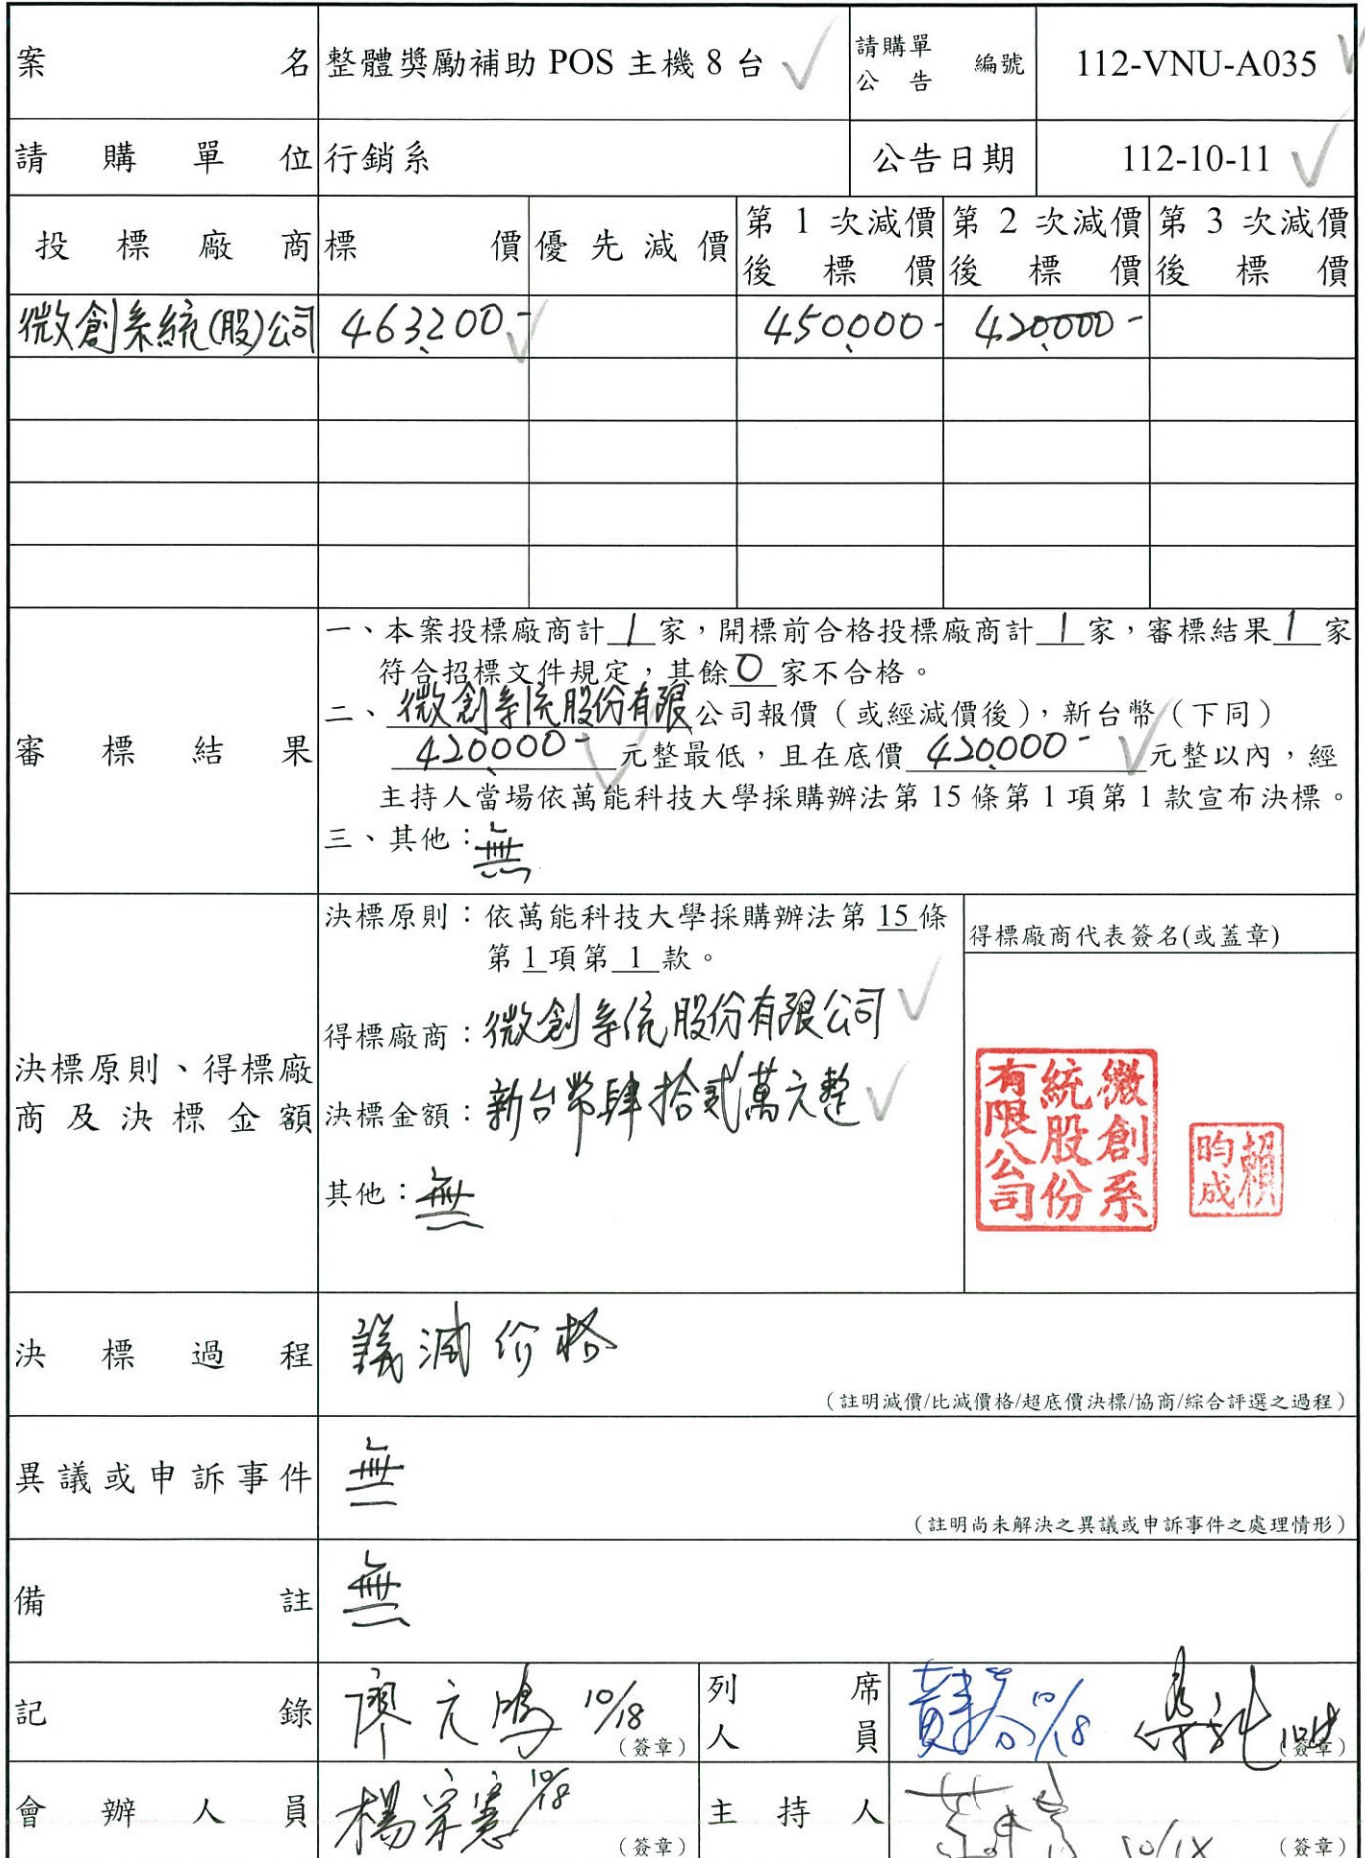 案名 整體獎勵補助 POS 主機 8 台 請購單公告 編號 112-VNU-A035
請購單位 行銷系 公告日期 112-10-11
投標廠商 標價 優先減價 第 1 次減價後標價 第 2 次減價後標價 第 3 次減價後標價
微創系統(股)公司 463,200- 450,000- 420,000-
審標結果
一、本案投標廠商計 1 家,開標前合格投標廠商計 1 家,審標結果 1 家
符合招標文件規定,其餘 0 家不合格。
二、微創系統股份有限公司報價(或經減價後),新台幣(下同)
420,000- 元整最低,且在底價 420,000- 元整以內,經
主持人當場依萬能科技大學採購辦法第 15 條第 1 項第 1 款宣布決標。
三、其他:無
決標原則、得標廠商及決標金額
決標原則:依萬能科技大學採購辦法第 15 條
第 1 項第 1 款。
得標廠商:微創系統股份有限公司
決標金額:新台幣肆拾貳萬元整
其他:無
得標廠商代表簽名(或蓋章)
微創系統股份有限公司
賴昀成
決標過程 議減价格
(註明減價/比減價格/超底價決標/協商/綜合評選之過程)
異議或申訴事件 無
(註明尚未解決之異議或申訴事件之處理情形)
備註 無
記錄 廖元鴻 10/18 (簽章) 列席人員 10/18 (簽章)
會辦人員 楊宗憲 10/18 (簽章) 主持人 10/18 (簽章)